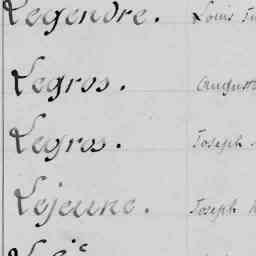 Legendre. Louis
Legros. August
Legros. Joseph
Lejeune. Joseph